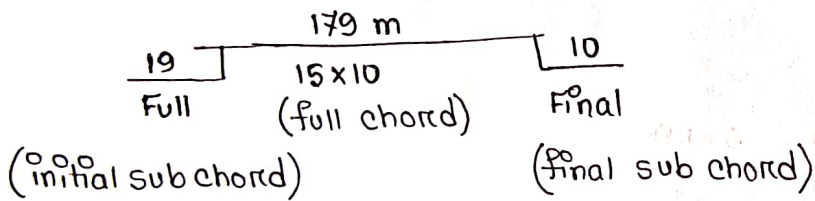 179 m
19 15 x 10 10
Full (full chord) Final
(initial sub chord) (final sub chord)